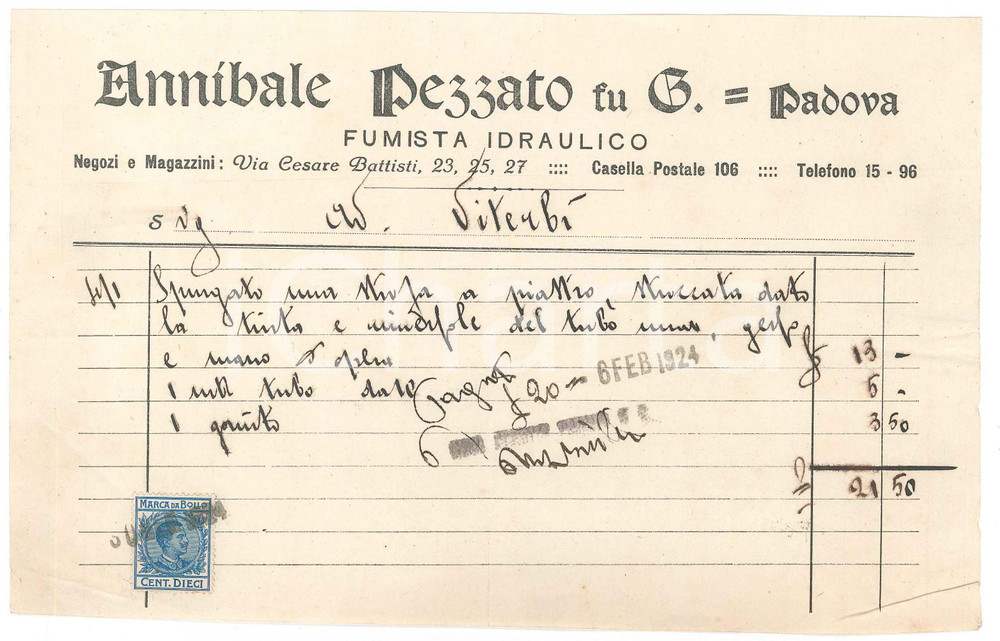 Annibale Pezzato fu G. = Padova
FUMISTA IDRAULICO
Negozi e Magazzini: Via Cesare Battisti, 23, 25, 27 :::: Casella Postale 106 :::: Telefono 15 - 96
Sig Ad. Viterbi
Spurgato una stufa a piattro, stuccata dato
la tinta e del tubo
e mano d'opera £ 13 -
1 tubo 5 -
1 gomito 3 50
Pagato £ 20 = 6 FEB 1924
21 50
MARCA DA BOLLO
CENT. DIECI